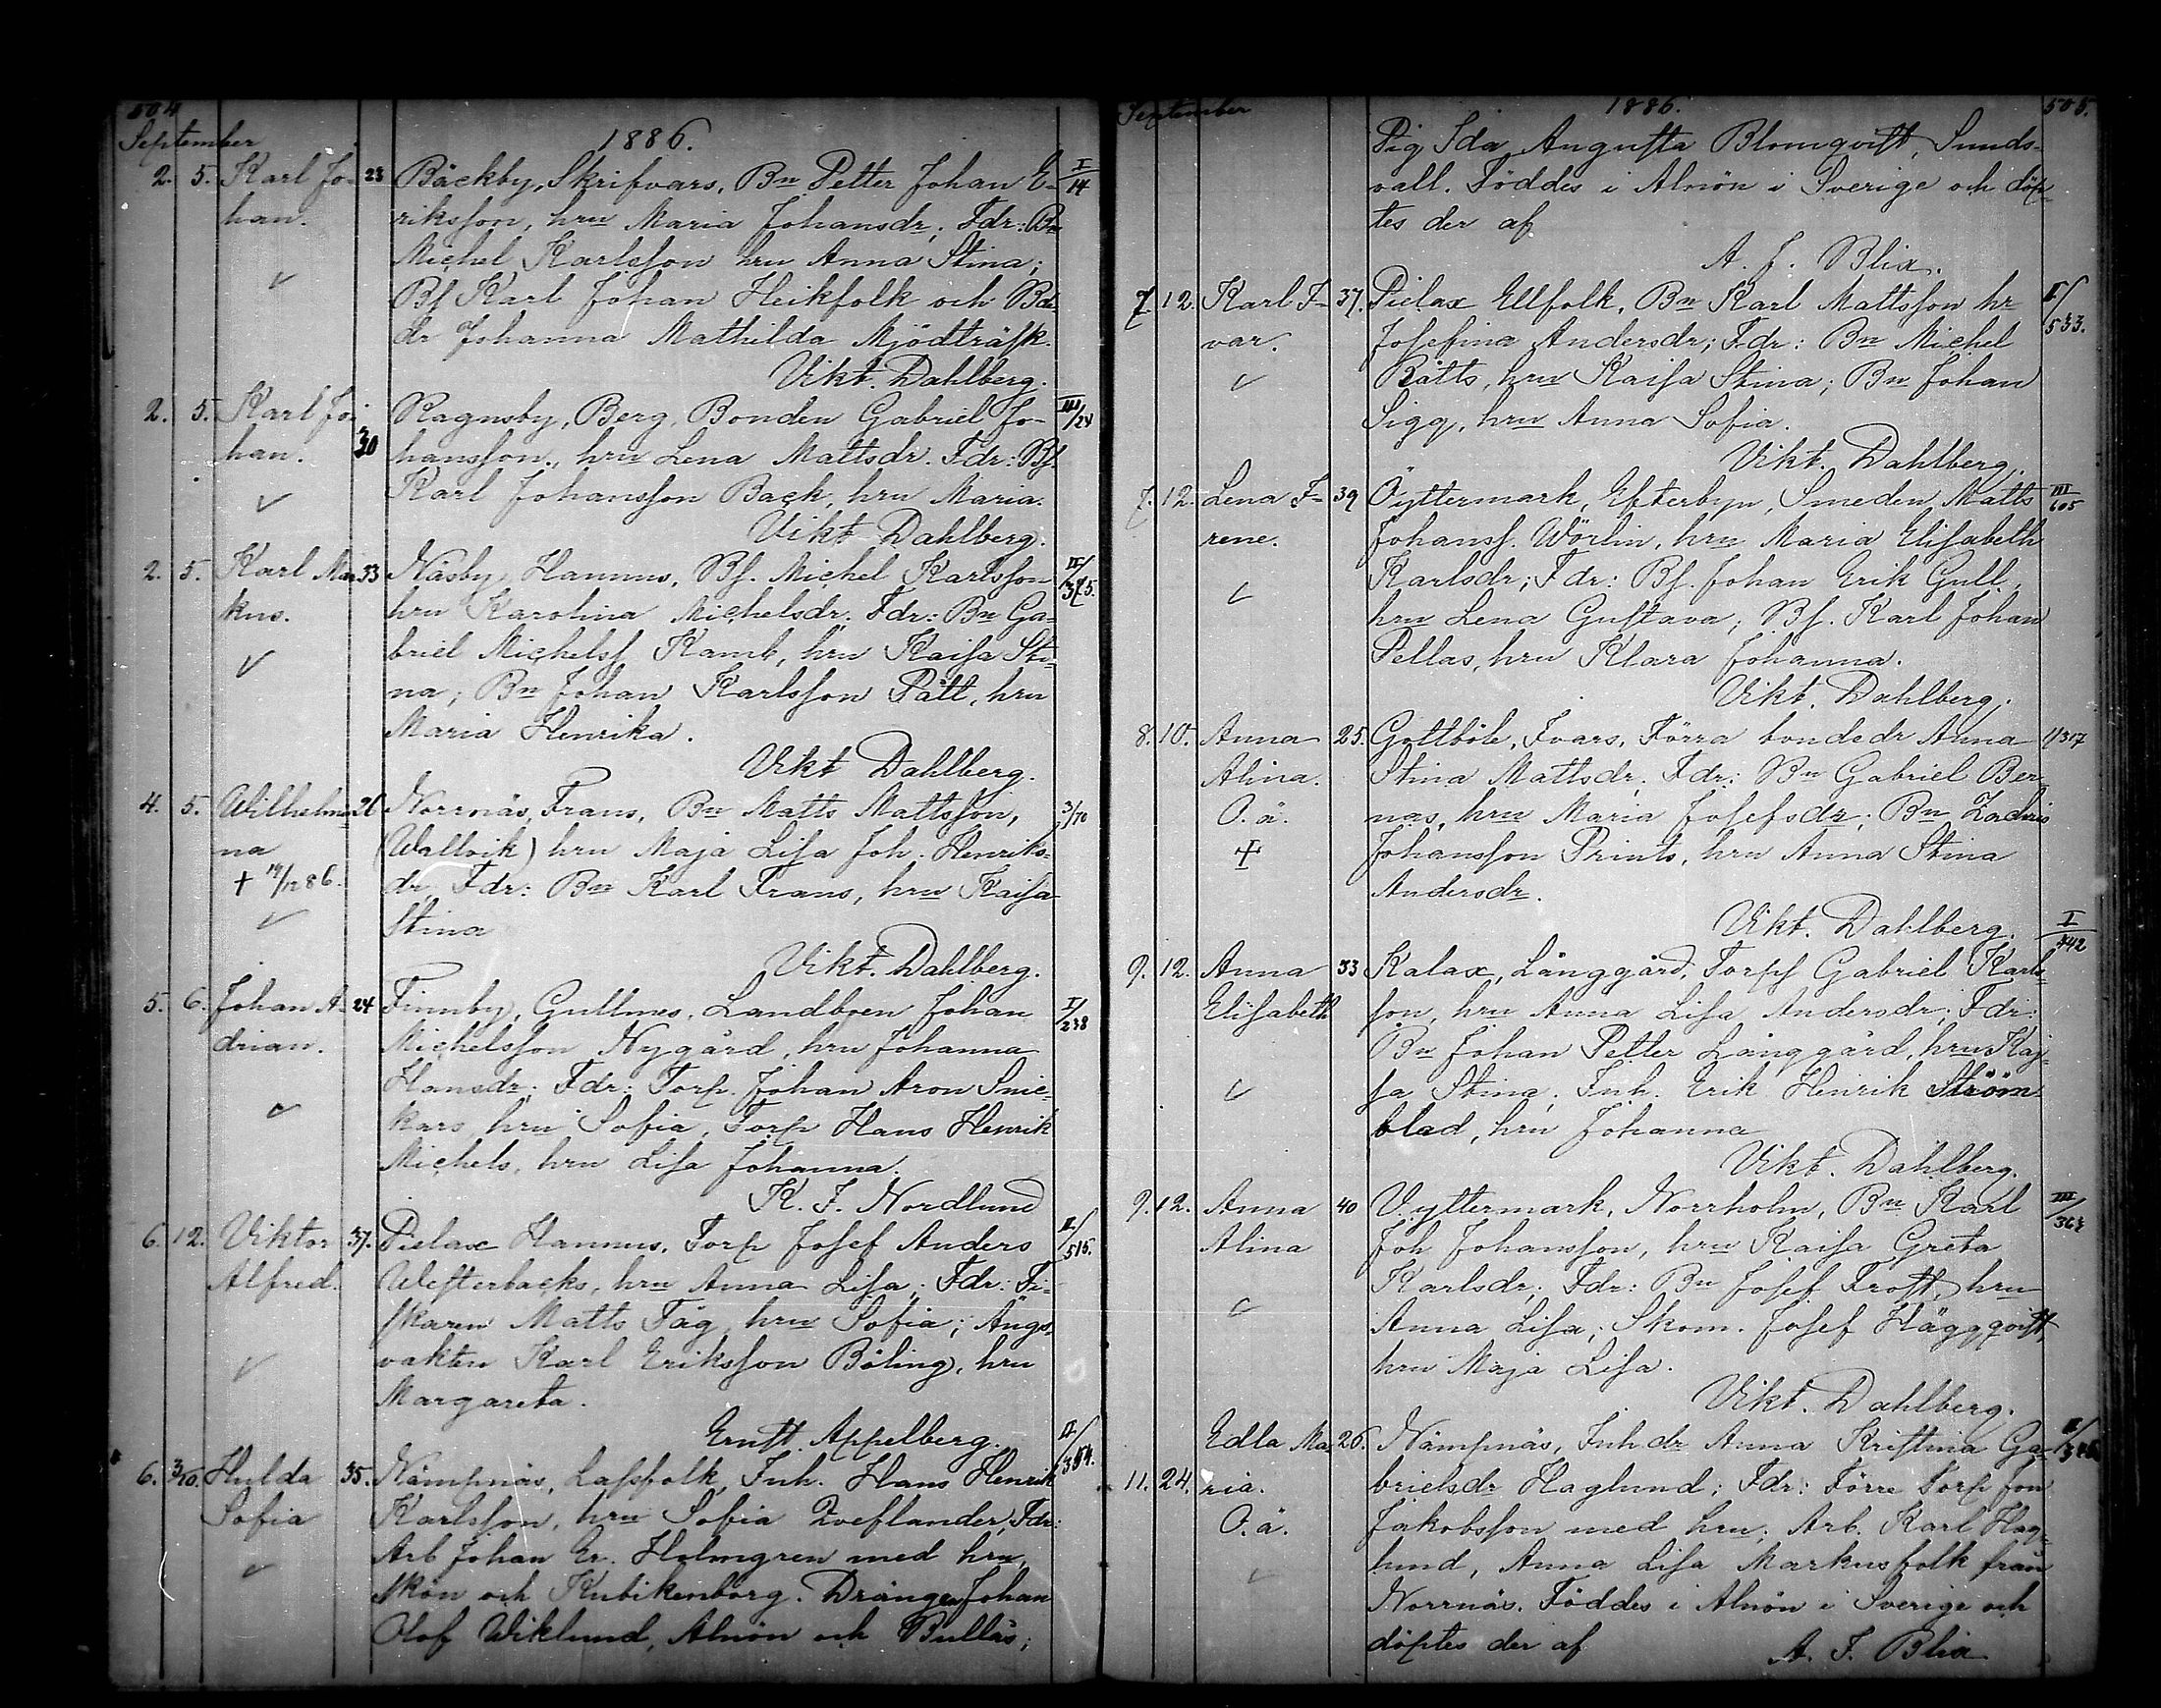 504
September
1886.
2. 5. Karl Jo- 23 Bäckby, Skrifvars, Bn Petter Johan E- I/14
han. riksson, hru Maria Johansdr; Fdr: Bn
Michel Karlsson hru Anna Stina;
Bs Karl Johan Heikfolk och Bde
dr Johanna Mathilda Mjödträsk.
Vikt. Dahlberg.
2. 5. Karl Jo- Ragnsby, Berg, Bonden Gabriel Jo- III/24
han. 30 hansson, hru Lena Mattsdr. Fdr: Bs.
Karl Johansson Back, hru Maria.
Vikt Dahlberg.
2. 5. Karl Mar 33 Näsby, Hannus, Bs. Michel Karlsson
kus. hru Karolina Michelsdr. Fdr: Bn Ga-
briel Michelss Kamb, hru Kaisa Sti-
na; Bn Johan Karlsson Pått, hru
Maria Henrika.
Vikt Dahlberg.
4. 5. Wilhelmi 26 Norrnäs, Frans, Bn Matts Mattsson, 3/70
na (Wallvik) hru Maja Lisa Joh. Henriks-
+ 19/12 86. dr, Fdr: Bn Karl Frans, hru Kaisa
Stina
Vikt. Dahlberg.
5. 6. Johan A- 24 Finnby, Gullmes, Landboen Johan I/238
drian. Michelsson Nygård, hru Johanna
Hansdr; Fdr: Torp. Johan Aron Snic-
kars, hru Sofia, Torp Hans Henrik
Michels, hru Lisa Johanna.
K. J. Nordlund
6. 12. Viktor 37. Pielax Hannus, Torp Josef Anders II/515.
Alfred. Westerbacks, hru Anna Lisa; Fdr: Fi-
skaren Matts Täg, hru Sofia; Ängs-
vakten Karl Eriksson Böling, hru
Margareta.
Ernst. Appelberg.
6. 3/10. Hulda 35. Nämpnäs, Lassfolk, Inh. Hans Henrik II/354.
Sofia Karlsson, hru Sofia Zveflander, Fdr:
Arb Johan Er. Holmgren med hru,
Skön och Kubikenborg. Drängen Johan
Olof Wiklund, Alnön och Bullås;
September
1886.
505.
Pig Ida Augusta Blomqvist, Sunds-
vall. Föddes i Alnön i Sverige och döp-
tes der af
A. J. Blix.
7. 12. Karl I- 37. Pielax Ellfolk, Bn Karl Mattsson hr II/533.
var. Josefina Andersdr; Fdr: Bn Michel
Rätts, hru Kaisa Stina; Bn Johan
Sigg, hru Anna Sofia.
Vikt. Dahlberg.
7. 12. Lena I- 39 Öyttermark, Efterbyn, Smeden Matts III/605
rene. Johanss. Wörlin, hru Maria Elisabeth
Karlsdr; Fdr: Bs. Johan Erik Gull,
hru Lena Gustava; Bs. Karl Johan
Pellas, hru Klara Johanna.
Vikt. Dahlberg.
8. 10. Anna 25. Gottböle, Ivars, Förra bondedr Anna 1/317
Alina. Stina Mattsdr; Fdr: Bn Gabriel Ber-
O. ä. nas, hru Maria Josefsdr; Bn Zachris
+ Johansson Prints, hru Anna Stina
Andersdr.
Vikt. Dahlberg. I/442
9. 12. Anna 33 Kalax, Långgärd, Torps Gabriel Karls-
Elisabeth son, hru Anna Lisa Andersdr; Fdr:
Bn Johan Petter Långgård, hru Kaj-
sa Stina; Inh. Erik Henrik Ström-
blad, hru Johanna
Vikt. Dahlberg.
9. 12. Anna 40 V. yttermark, Norrholm, Bn Karl III/363
Alina Joh Johansson, hru Kaisa Greta
Karlsdr; Fdr: Bn Josef Frost, hru
Anna Lisa; Skom. Josef Häggqvist
hru Maja Lisa.
Vikt. Dahlberg.
Edla Ma 26. Nämpnäs, Inh dr Anna Kristina Ga-
11. 24. ria. brielsdr Haglund; Fdr: Förre Torp son
O. ä. Jakobsson med hru; Arb. Karl Hag-
lund, Anna Lisa Markusfolk från
Norrnäs. Föddes i Alnön i Sverige och
döptes der af A. J. Blix